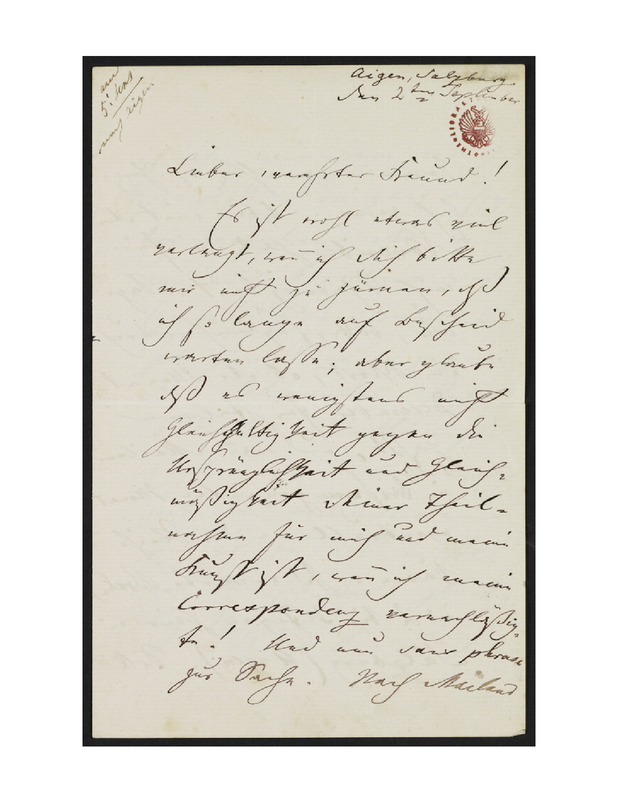 Aigen, Salzburg
den 2ten September
Lieber, verehrter Freund!
Es ist wohl etwas viel
verlangt, wen̄ ich Dich bitte
mir nicht zu zürnen, daß
ich so lange auf Bescheid
warten lasse; aber glaube
daß es wenigstens nicht
Gleichgültigkeit gegen die
Ursprünglichkeit und Gleich-
mäßigkeit Deiner Theil-
nahme für mich und meine
Kunst ist, wen̄ ich meine
Correspondenz vernachläßig-
te! Und nun sans phrase
zur Sache. Nach Mailand